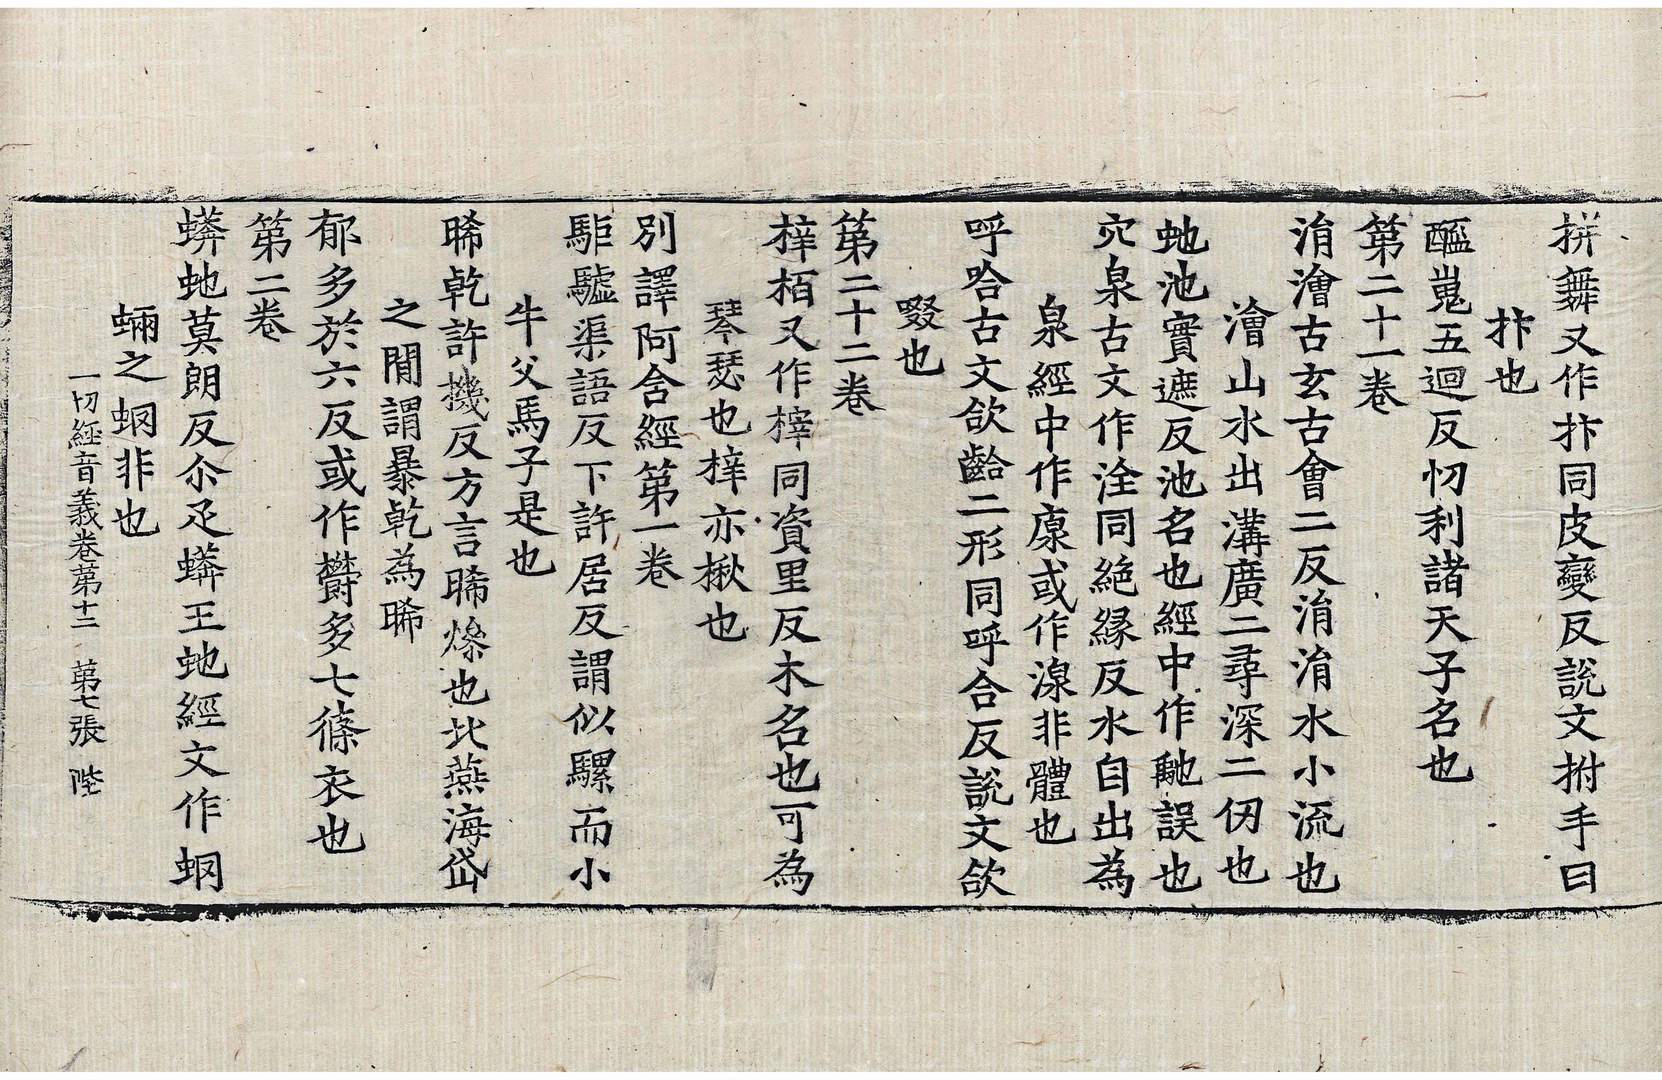 拼舞又作抃同皮變反說文拊手曰
抃也
醞嵬五迴反忉利諸天子名也
第二十一卷
涓澮古玄古會二反涓涓水小流也
澮山水出溝廣二尋深二仞也
虵池實遮反池名也經中作馳誤也
泬泉古文作洤同絶縁反水自出為
泉經中作㾛或作湶非體也
呼哈古文欱齝二形同呼合反說文欱
歠也
第二十二卷
梓栢又作榟同資里反木名也可為
琴瑟也梓亦楸也
別譯阿含經第一卷
駏驉渠語反下許居反謂似騾而小
牛父馬子是也
晞乾許機反方言晞燥也北燕海岱
之間謂暴乾為晞
郁多於六反或作欝多七條衣也
第二卷
蟒虵莫朗反尒疋蟒王虵經文作蛧
蜽之蛧非也
一切經音義卷第十二 第七張 陛